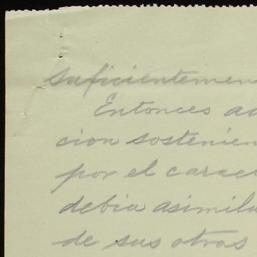 suficientemen
Entonces a
cion sostenien
por el carac
debia asimila
de sus otros